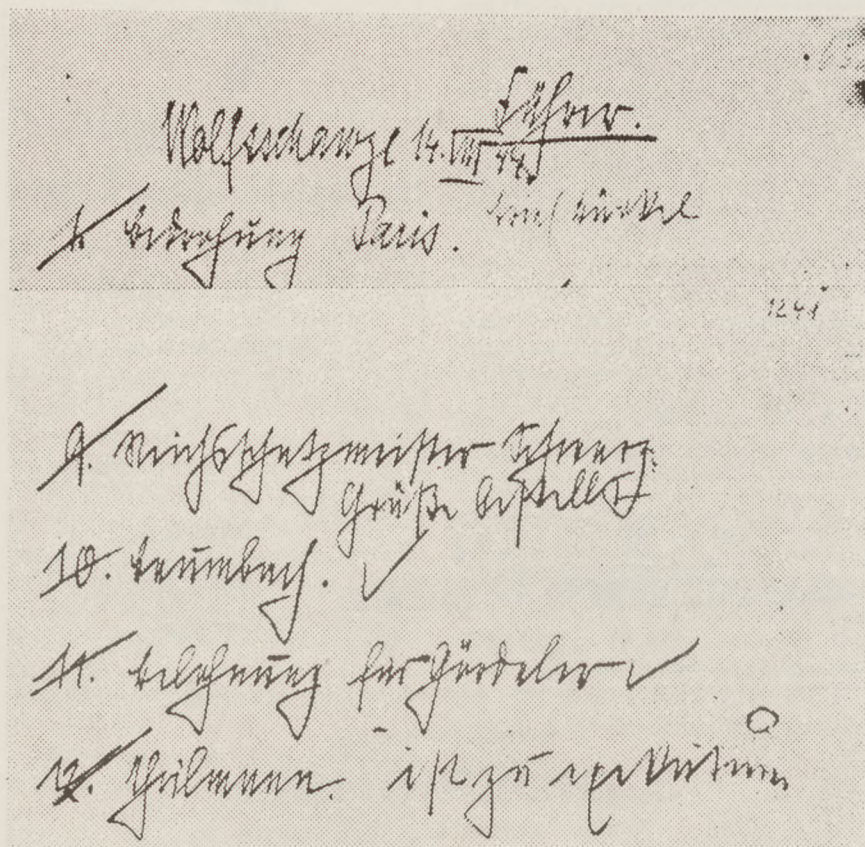 Führer.
Wolfsschanze 14.VIII 44.
1. Bedrohung Paris. Brief Bürkel
1241
9. Reichsschatzmeister Schwarz.
Grüße bestellt
10. Baumbach. ✓
11. Belohnung für Gördeler ✓
12. Thälmann. ist zu exekutieren